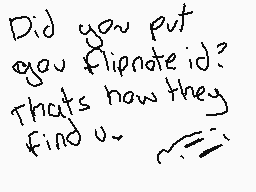 Did you put
you flipnote id?
Thats how they
find u.